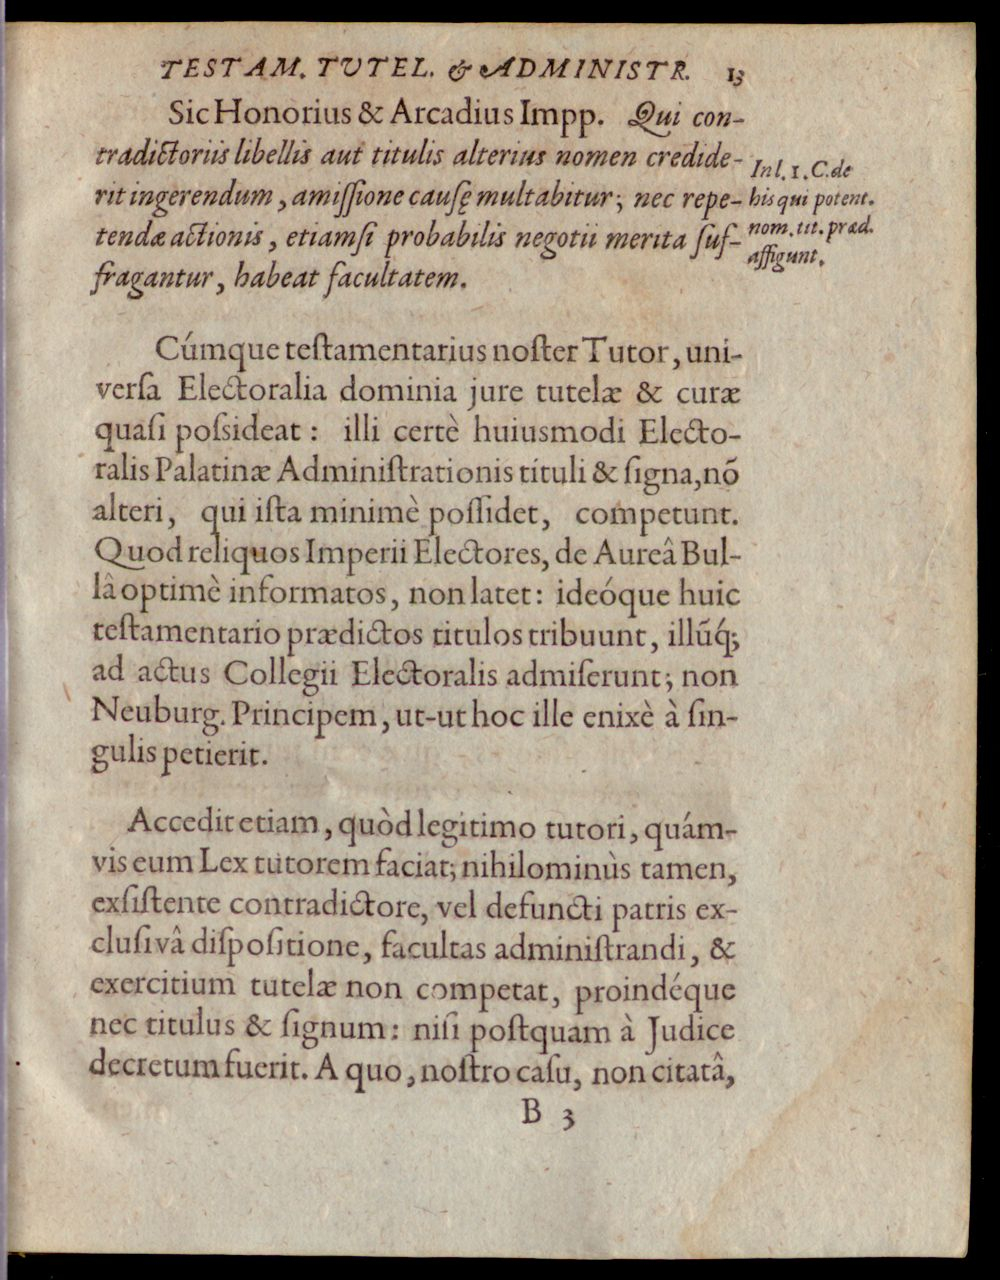 TESTAM. TVTEL. & ADMINISTR. 13
Sic Honorius & Arcadius Impp. Qui con-
tradictoriis libellis aut titulis alterius nomen credide-
rit ingerendum, amiſſione cauſę multabitur; nec repe-
tendæ actionis, etiamſi probabilis negotii merita ſuf-
fragantur, habeat facultatem.
In l. 1. C. de
his qui potent.
nom. tit. præd.
affigunt.
Cúmque teſtamentarius noſter Tutor, uni-
verſa Electoralia dominia jure tutelæ & curæ
quaſi poſsideat: illi certè huiusmodi Electo-
ralis Palatinæ Adminiſtrationis tituli & ſigna, nō
alteri, qui iſta minimè poſſidet, competunt.
Quod reliquos Imperii Electores, de Aureâ Bul-
lâ optimè informatos, non latet: ideóque huic
teſtamentario prædictos titulos tribuunt, illū́q;
ad actus Collegii Electoralis admiſerunt; non
Neuburg. Principem, ut-ut hoc ille enixè à ſin-
gulis petierit.
Accedit etiam, quòd legitimo tutori, quám-
vis eum Lex tutorem faciat; nihilominùs tamen,
exſiſtente contradictore, vel defuncti patris ex-
cluſivâ diſpoſitione, facultas adminiſtrandi, &
exercitium tutelæ non competat, proindéque
nec titulus & ſignum: niſi poſtquam à Judice
decretum fuerit. A quo, noſtro caſu, non citatâ,
B 3